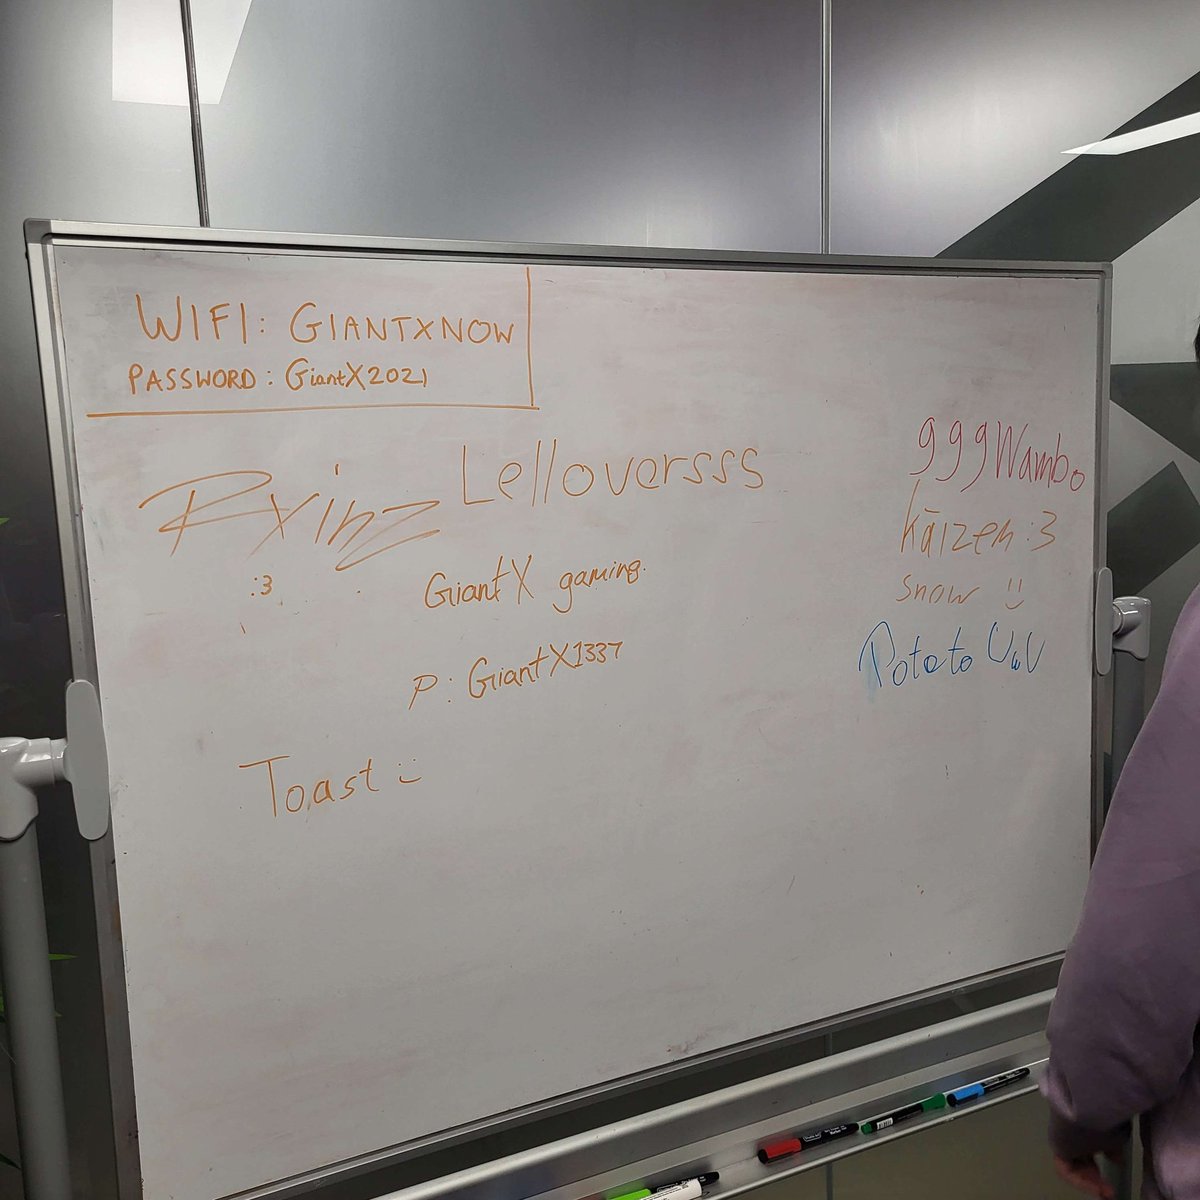 WIFI: GIANTXNOW
PASSWORD: GiantX2021
Rxinz Lelloversss
:3
GiantX gaming.
P: GiantX1337
Toast :)
999Wambo
kāizen :3
snow :)
Potato UwU